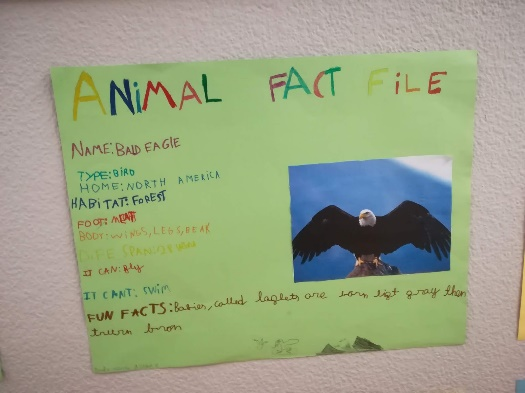 ANiMAL FACT FiLE
NAME: BALD EAGLE
TYPE: BIRD
HOME: NORTH AMERICA
HABiTAT: FOREST
FOOD: MEAT
BODY: WINGS, LEGS, BEAK
LIFE SPAN:
IT CAN: fly
IT CANT: SWIM
FUN FACTS: Babies, called Eaglets, are born ligt gray then